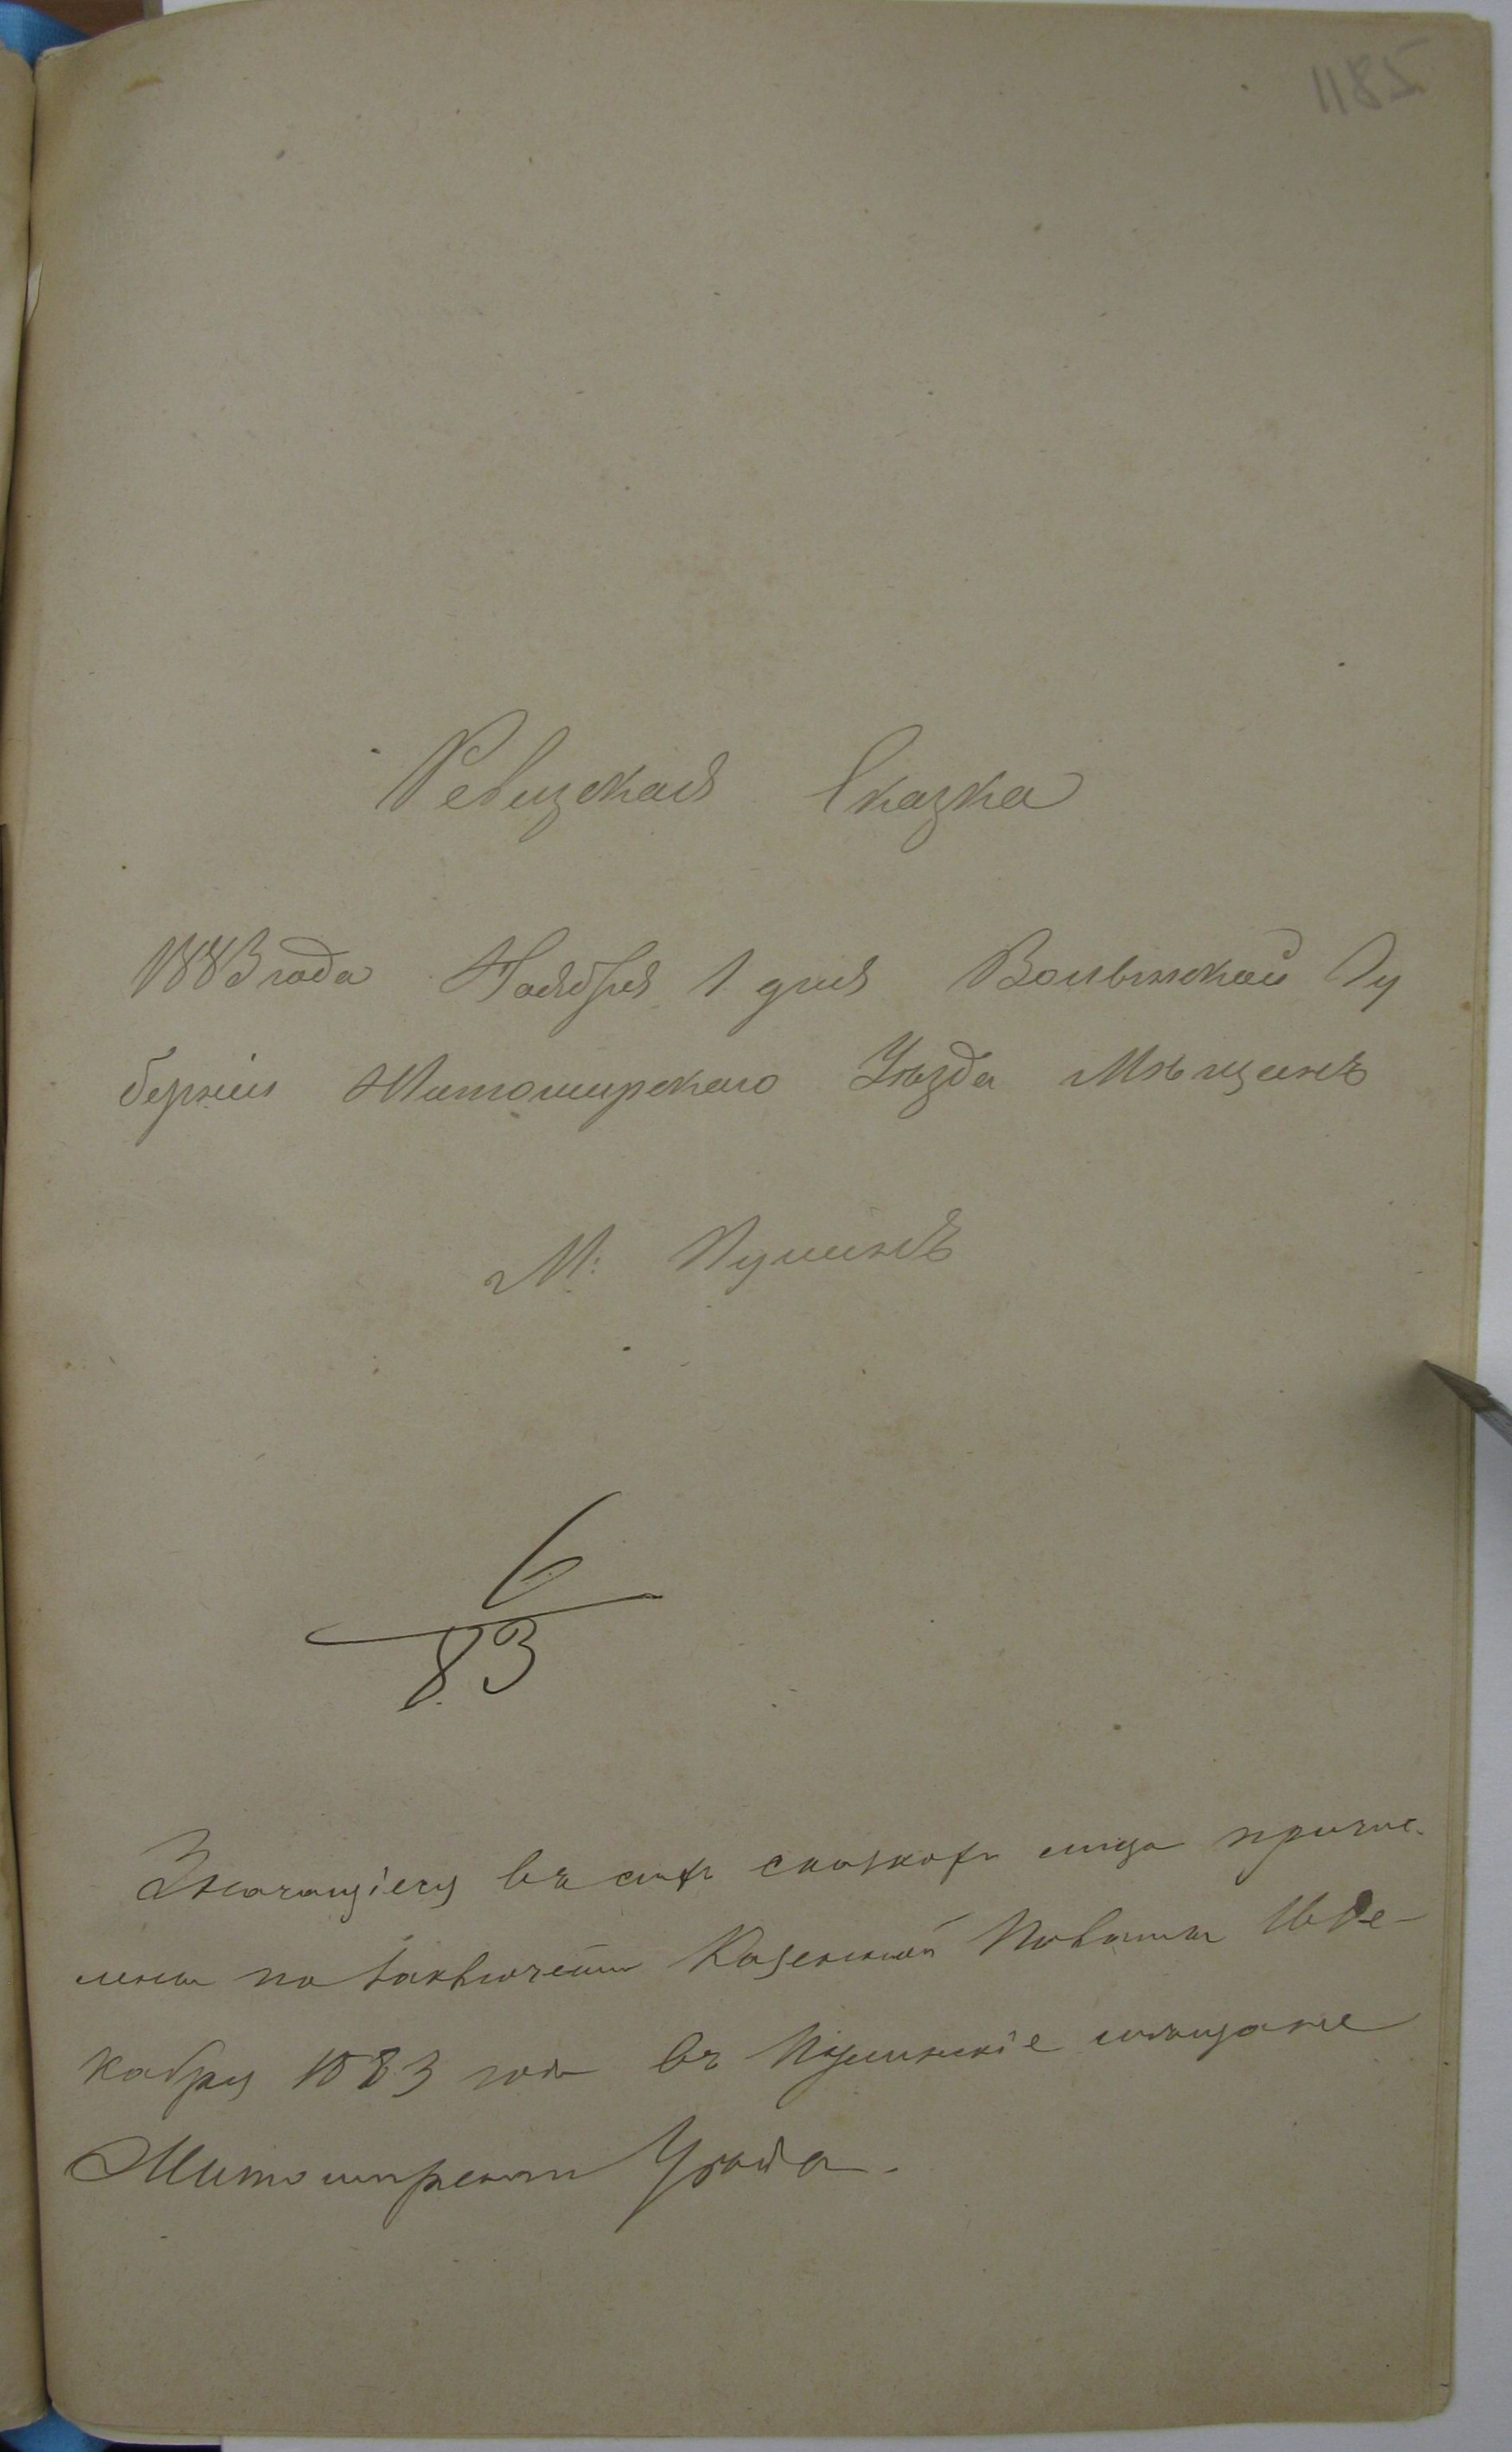 1185
Ревизская Сказка
1883 года Ноября 1 дня Волынской Гу
берніи Житомирскаго Уѣзда Мѣщанъ
М: Пулинъ
6
83
Значащіеся въ сей сказкѣ лица причис-
лены по Казенной Палаты 16 Де-
кабря 1883 года въ Пулинскіе мѣщане
Житомирскаго Уѣзда.